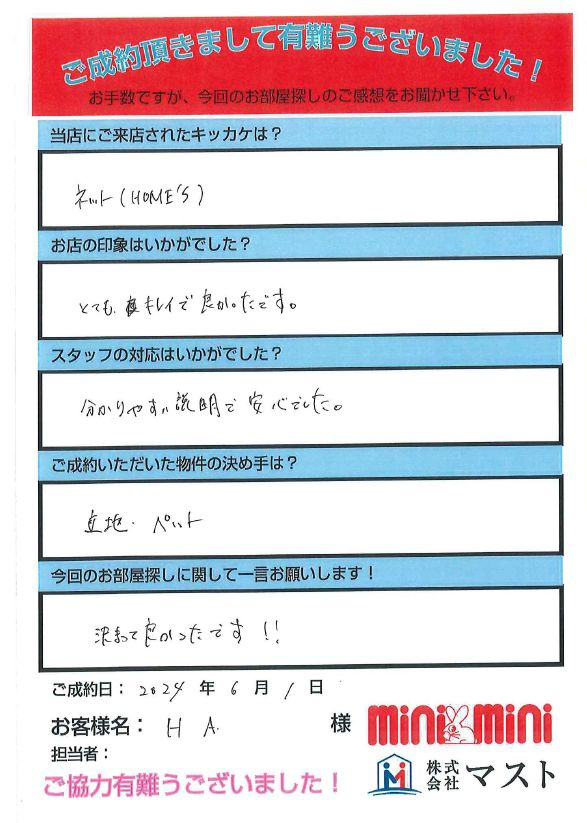 ご成約頂きまして有難うございました！
お手数ですが、今回のお部屋探しのご感想をお聞かせ下さい。
当店にご来店されたキッカケは？
ネット(HOME'S)
お店の印象はいかがでした？
とても、キレイで良かったです。
スタッフの対応はいかがでした？
分かりやすい説明で安心でした。
ご成約いただいた物件の決め手は？
立地・ペット
今回のお部屋探しに関して一言お願いします！
決まって良かったです！！
ご成約日：2024年6月1日
お客様名：H A. 様
minimini
担当者：
株式会社マスト
ご協力有難うございました！